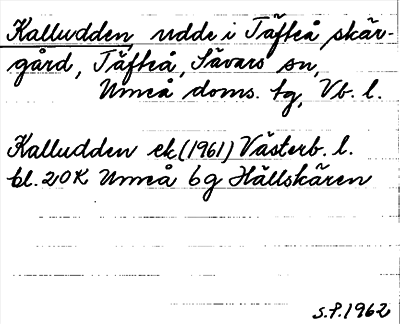 Kalludden, udde i Täfteå skär-
gård, Täfteå, Sävars sn,
Umeå doms. tg, Vb. l.
Kalludden ek (1961) Västerb. l.
bl. 20K Umeå 6g Hällskären
s.f. 1962